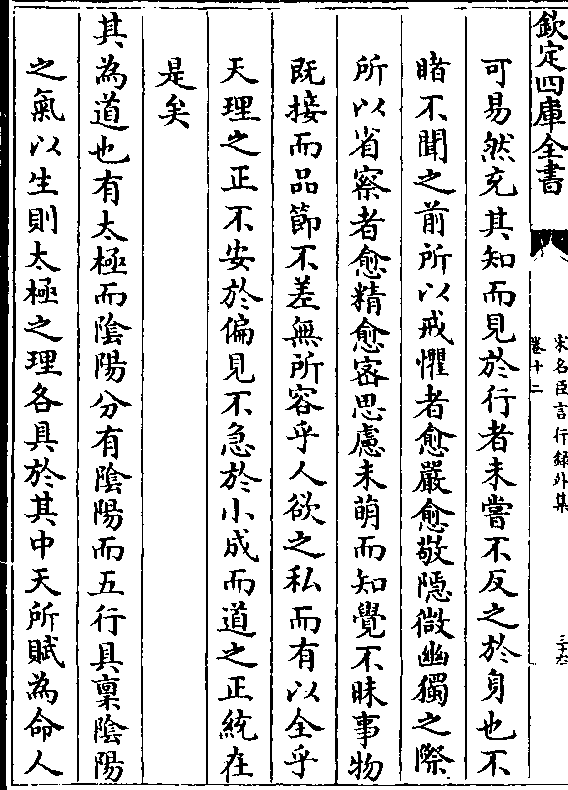 欽定四庫全書
宋名臣言行録外集
卷十二
三十六
可易然充其知而見於行者未嘗不反之於身也不
睹不聞之前所以戒懼者愈嚴愈敬隠微幽獨之際
所以省察者愈精愈宻思慮未萌而知覺不昧事物
既接而品節不差無所容乎人欲之私而有以全乎
天理之正不安於偏見不急於小成而道之正統在
是矣
其為道也有太極而陰陽分有陰陽而五行具稟陰陽
之氣以生則太極之理各具於其中天所賦為命人